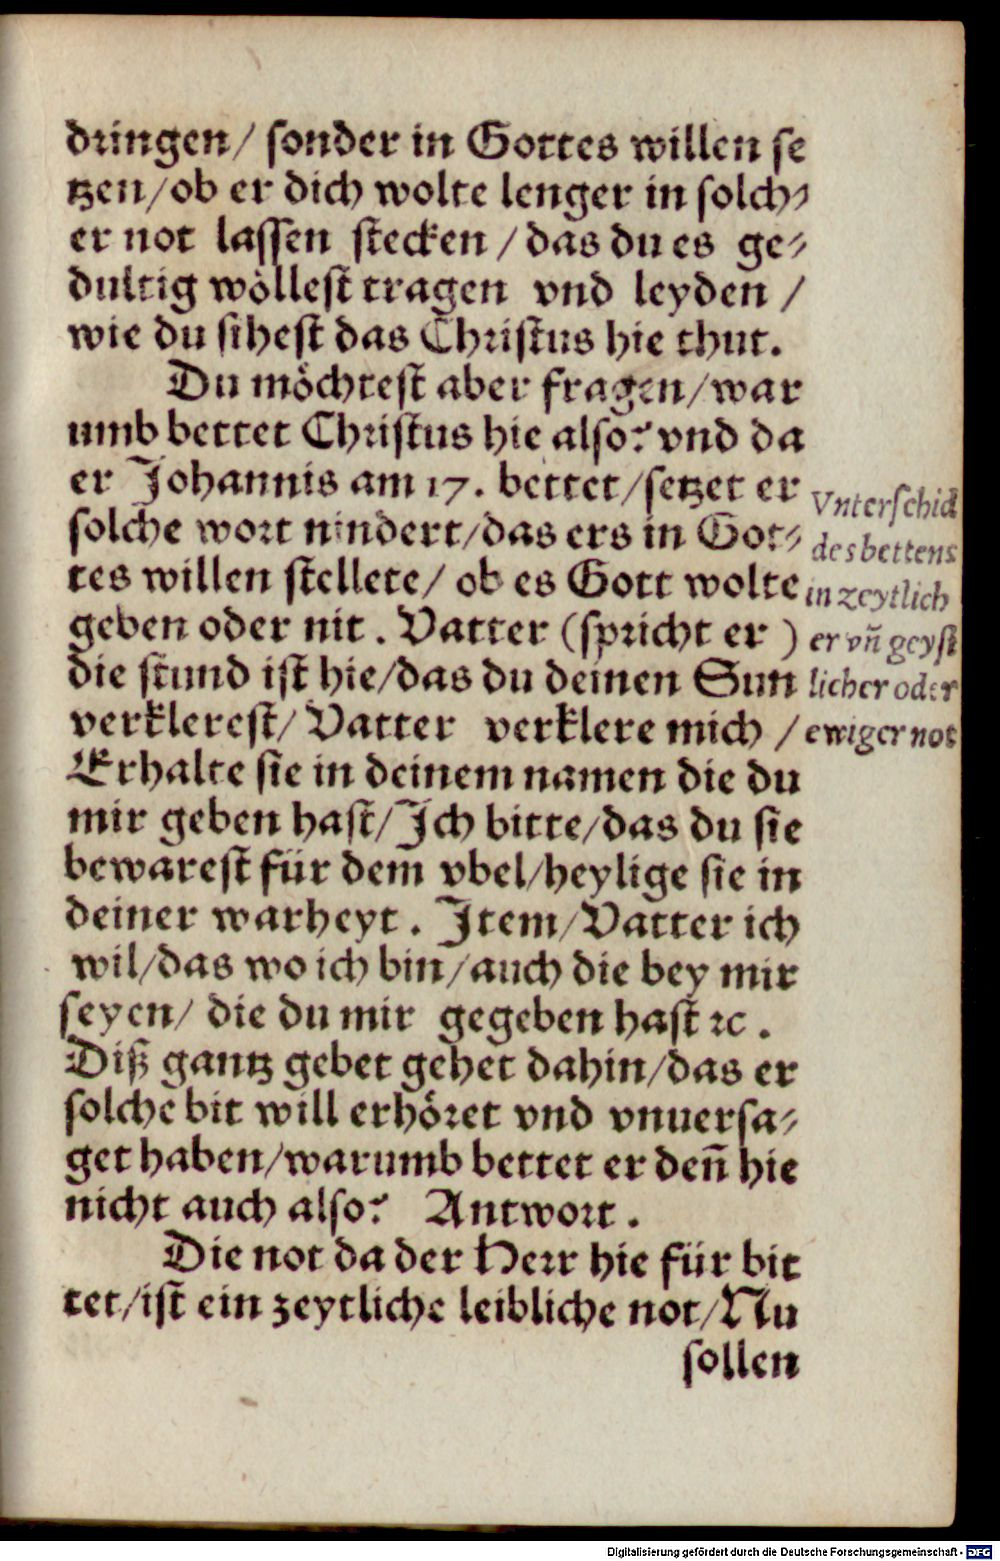 dringen/ sonder in Gottes willen se
tzen/ob er dich wolte lenger in solch⸗
er not lassen stecken / das du es ge⸗
dultig wöllest tragen vnd leyden /
wie du sihest das Christus hie thut.
Du möchtest aber fragen/war
umb bettet Christus hie also? vnd da
er Johannis am 17. bettet/setzet er
solche wort nindert/das ers in Got⸗
tes willen stellete/ ob es Gott wolte
geben oder nit . Vatter (spricht er )
die stund ist hie/das du deinen Sun
verklerest/ Vatter verklere mich /
Erhalte sie in deinem namen die du
mir geben hast/Ich bitte/das du sie
bewarest für dem vbel/heylige sie in
deiner warheyt . Item/Vatter ich
wil/das wo ich bin/auch die bey mir
seyen/ die du mir gegeben hast ꝛc .
Diß gantz gebet gehet dahin/das er
solche bit will erhöret vnd vnuersa⸗
get haben/warumb bettet er deñ hie
nicht auch also? Antwort .
Die not da der Herr hie für bit
tet/ist ein zeytliche leibliche not/Nu
sollen
Vnterschid
des bettens
in zeytlich
er vñ geyst
licher oder
ewiger not
Digitalisierung gefördert durch die Deutsche Forschungsgemeinschaft - DFG